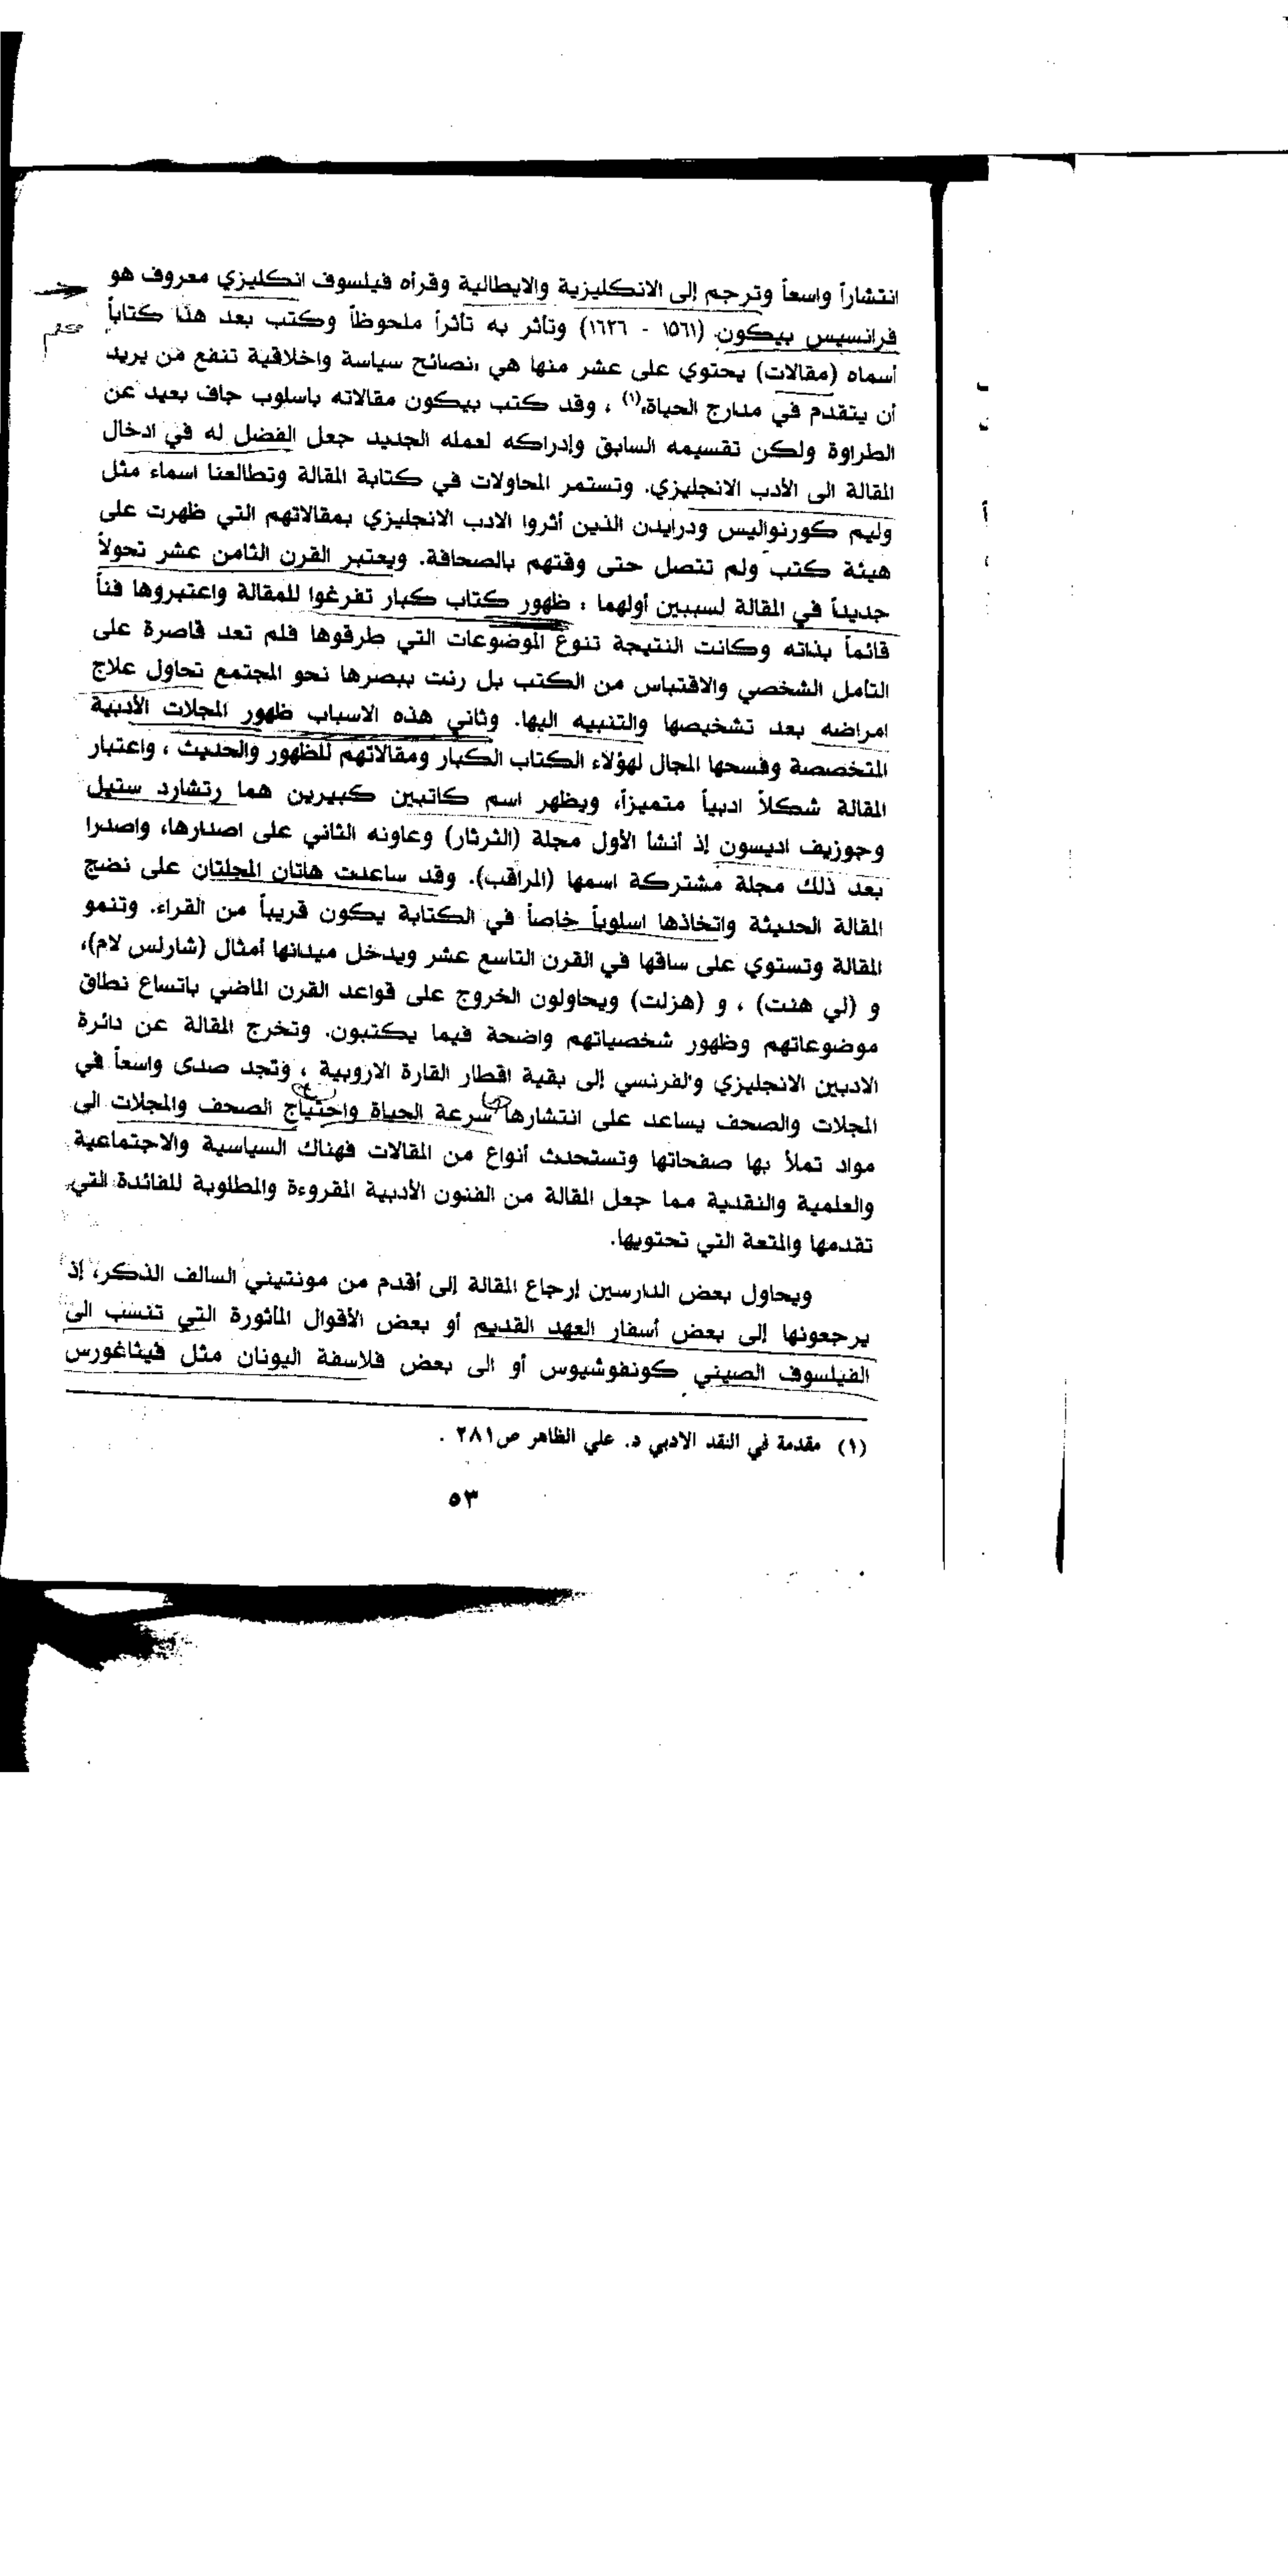 انتشاراً واسعاً وترجم إلى الانكليزية والايطالية وقرأه فيلسوف انكليزي معروف هو
فرانسيس بيكون (١٥٦١ - ١٦٢٦) وتأثر به تأثراً ملحوظاً وكتب بعد هذا كتاباً
أسماه (مقالات) يحتوي على عشر منها هي «نصائح سياسة واخلاقية تنفع من يريد
أن يتقدم في مدارج الحياة»(١) ، وقد كتب بيكون مقالاته باسلوب جاف بعيد عن
الطراوة ولكن تقسيمه السابق وإدراكه لعمله الجديد جعل الفضل له في ادخال
المقالة الى الأدب الانجليزي. وتستمر المحاولات في كتابة المقالة وتطالعنا اسماء مثل
وليم كورنواليس ودرايدن الذين أثروا الادب الانجليزي بمقالاتهم التي ظهرت على
هيئة كتب ولم تتصل حتى وقتهم بالصحافة. ويعتبر القرن الثامن عشر تحولاً
جديداً في المقالة لسببين أولهما : ظهور كتاب كبار تفرغوا للمقالة واعتبروها فناً
قائماً بذاته وكانت النتيجة تنوع الموضوعات التي طرقوها فلم تعد قاصرة على
التأمل الشخصي والاقتباس من الكتب بل رنت ببصرها نحو المجتمع تحاول علاج
امراضه بعد تشخيصها والتنبيه اليها. وثاني هذه الاسباب ظهور المجلات الأدبية
المتخصصة وفسحها المجال لهؤلاء الكتاب الكبار ومقالاتهم للظهور والحديث ، واعتبار
المقالة شكلاً ادبياً متميزاً، ويظهر اسم كاتبين كبيرين هما رتشارد ستيل
وجوزيف اديسون إذ أنشأ الأول مجلة (الثرثار) وعاونه الثاني على اصدارها، واصدرا
بعد ذلك مجلة مشتركة اسمها (المراقب). وقد ساعدت هاتان المجلتان على نضج
المقالة الحديثة واتخاذها اسلوباً خاصاً في الكتابة يكون قريباً من القراء. وتنمو
المقالة وتستوي على ساقها في القرن التاسع عشر ويدخل ميدانها أمثال (شارلس لام)،
و (لي هنت) ، و (هزلت) ويحاولون الخروج على قواعد القرن الماضي باتساع نطاق
موضوعاتهم وظهور شخصياتهم واضحة فيما يكتبون. وتخرج المقالة عن دائرة
الادبين الانجليزي والفرنسي إلى بقية اقطار القارة الاروبية ، وتجد صدى واسعاً في
المجلات والصحف يساعد على انتشارها سرعة الحياة واحتياج الصحف والمجلات الى
مواد تملأ بها صفحاتها وتستحدث أنواع من المقالات فهناك السياسية والاجتماعية
والعلمية والنقدية مما جعل المقالة من الفنون الأدبية المقروءة والمطلوبة للفائدة التي
تقدمها والمتعة التي تحتويها.
ويحاول بعض الدارسين إرجاع المقالة إلى أقدم من مونتيني السالف الذكر، إذ
يرجعونها إلى بعض أسفار العهد القديم أو بعض الأقوال المأثورة التي تنسب الى
الفيلسوف الصيني كونفوشيوس أو الى بعض فلاسفة اليونان مثل فيثاغورس
(١) مقدمة في النقد الادبي د. علي الظاهر ص٢٨١ .
٥٣